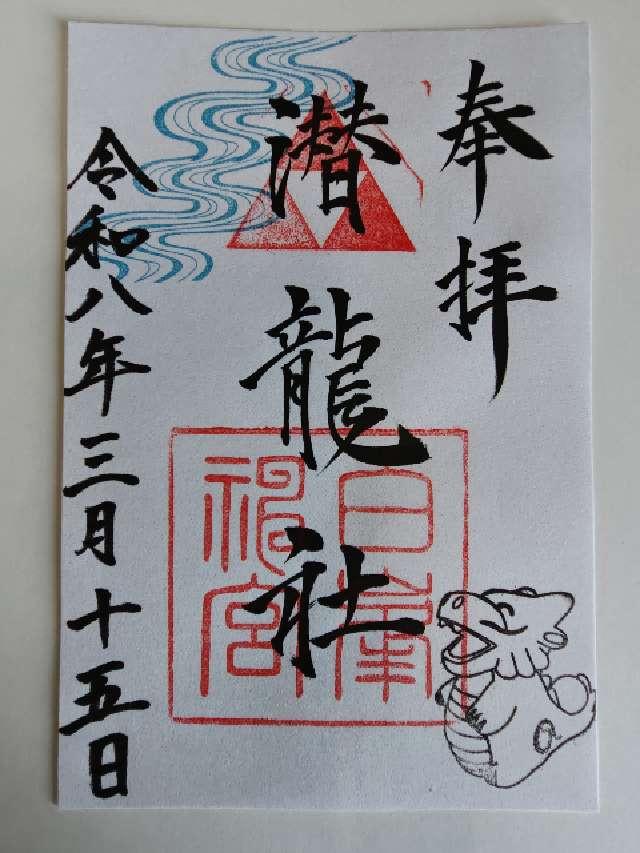 奉拝
潜龍社
白峯神宮
令和八年三月十五日